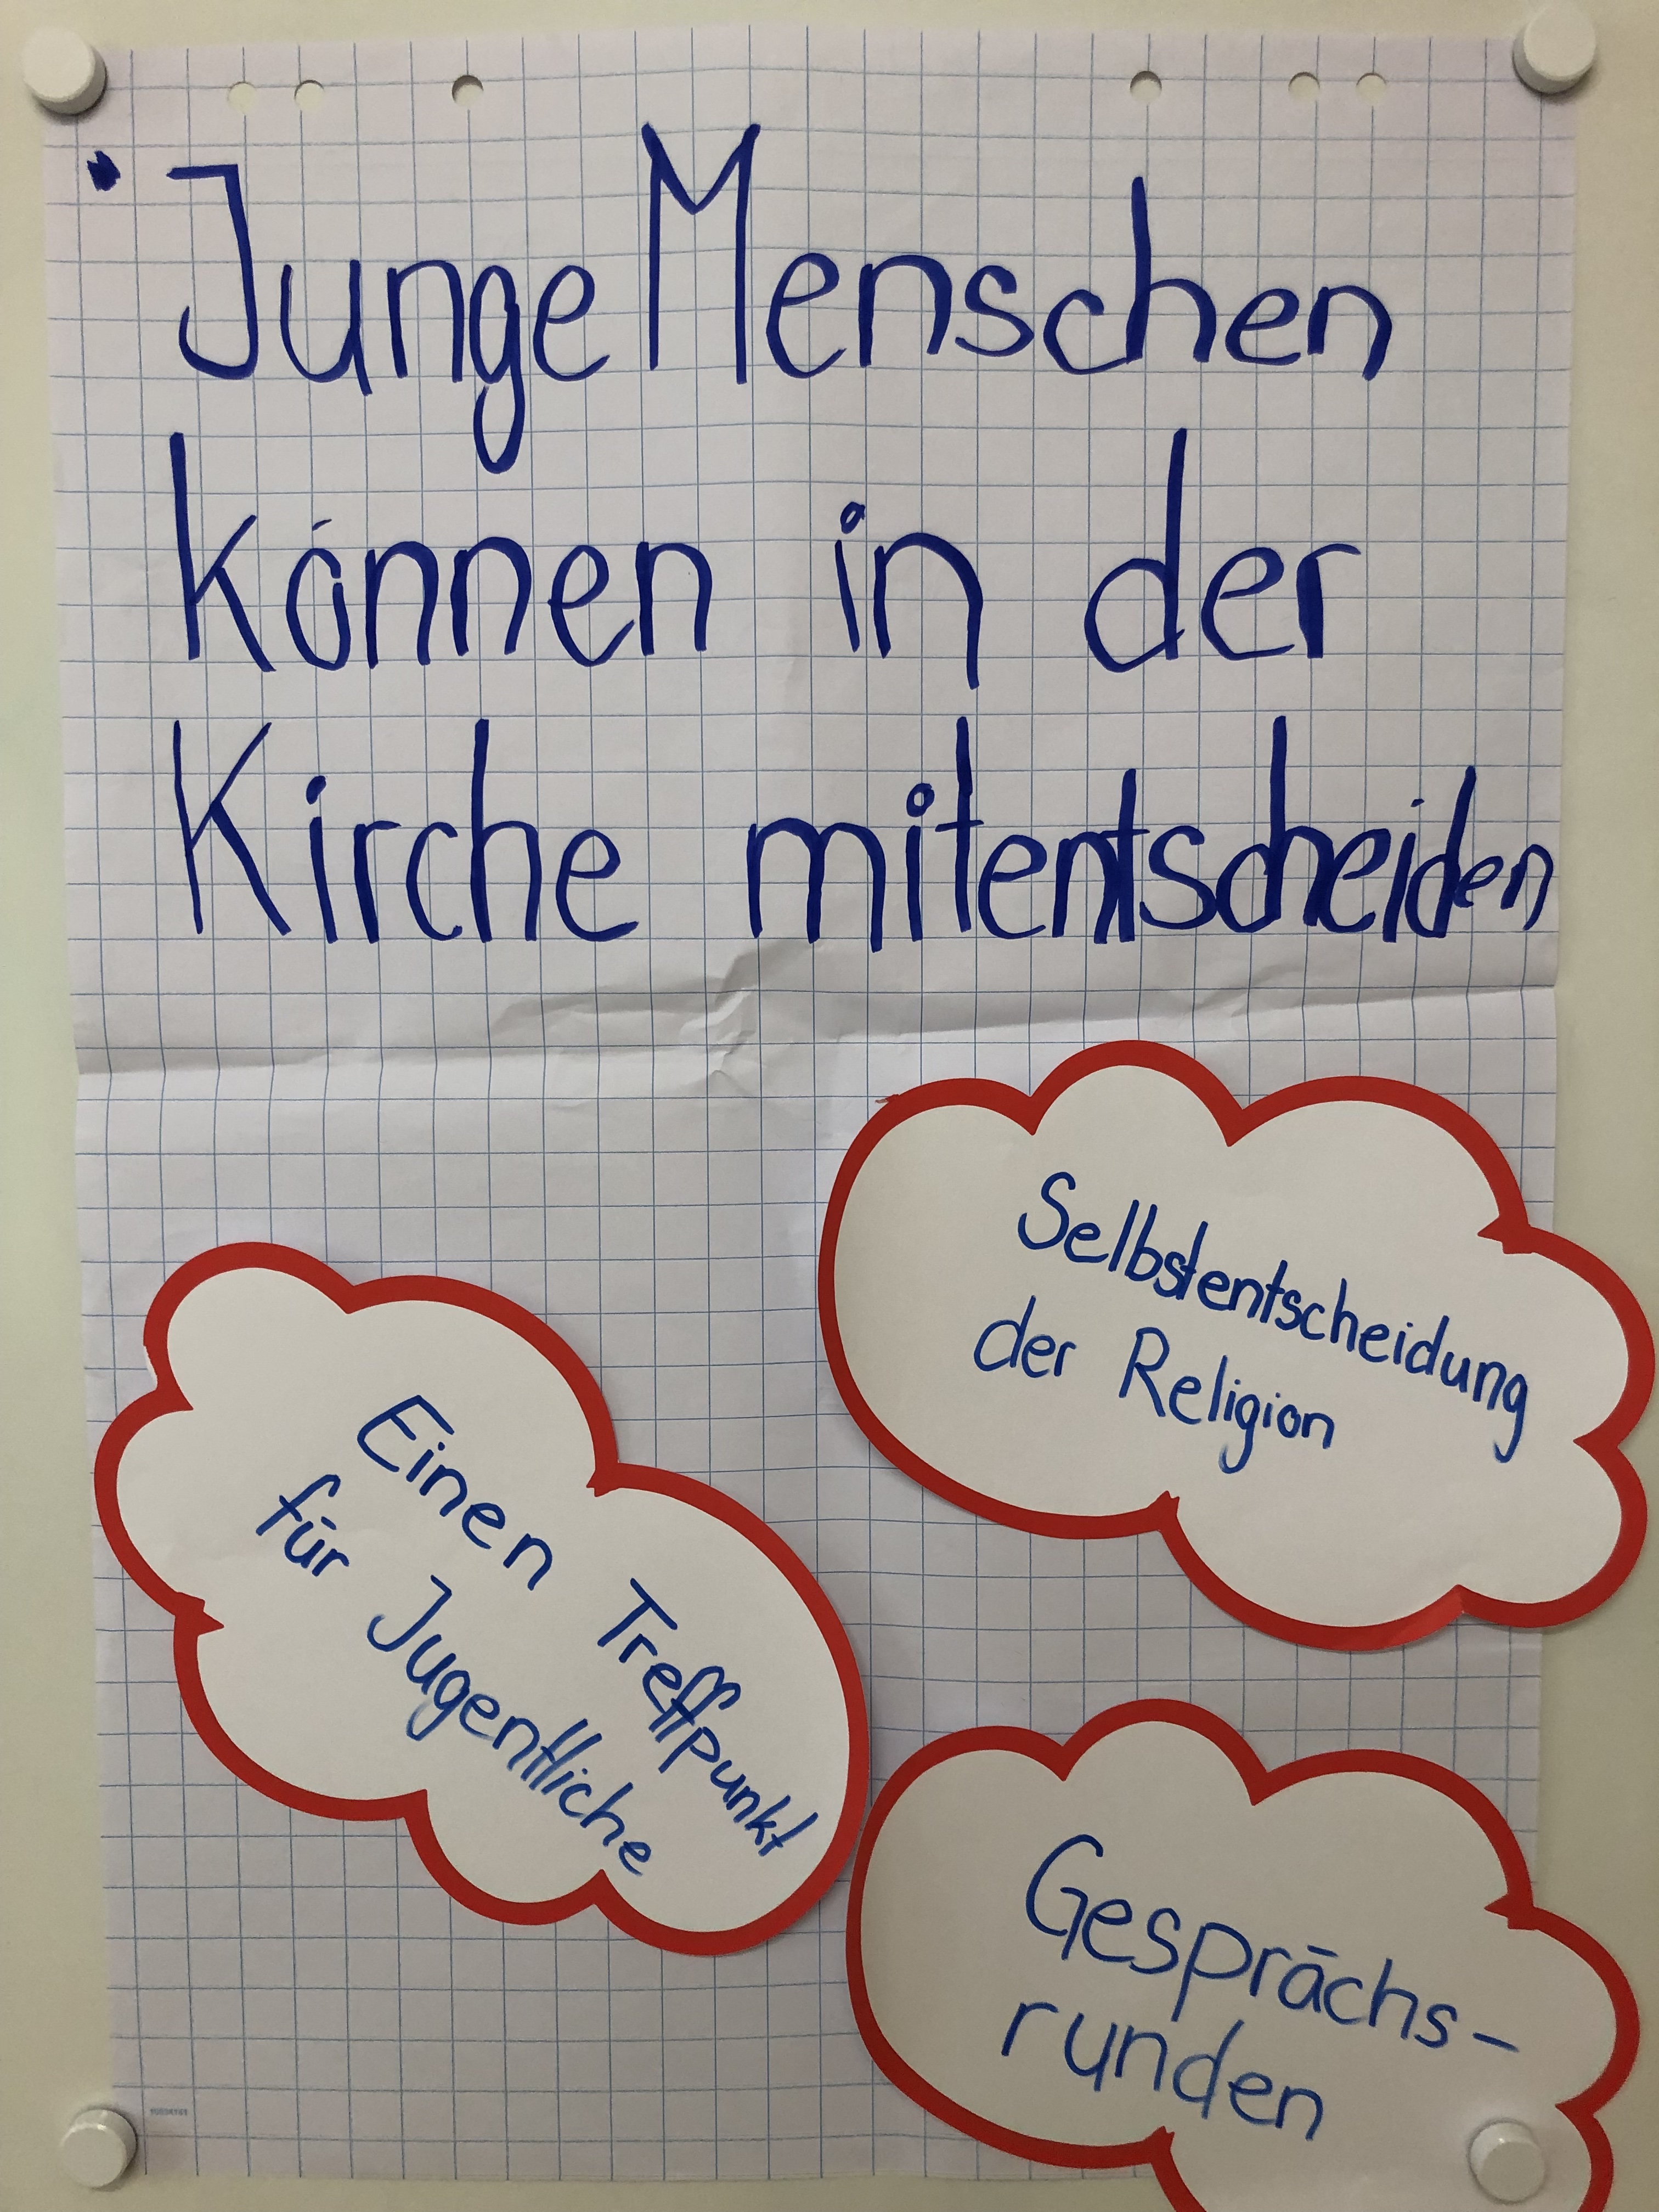 • Junge Menschen
können in der
Kirche mitentscheiden
Selbstentscheidung
der Religion
Einen Treffpunkt
für Jugentliche
Gesprächs-
runden